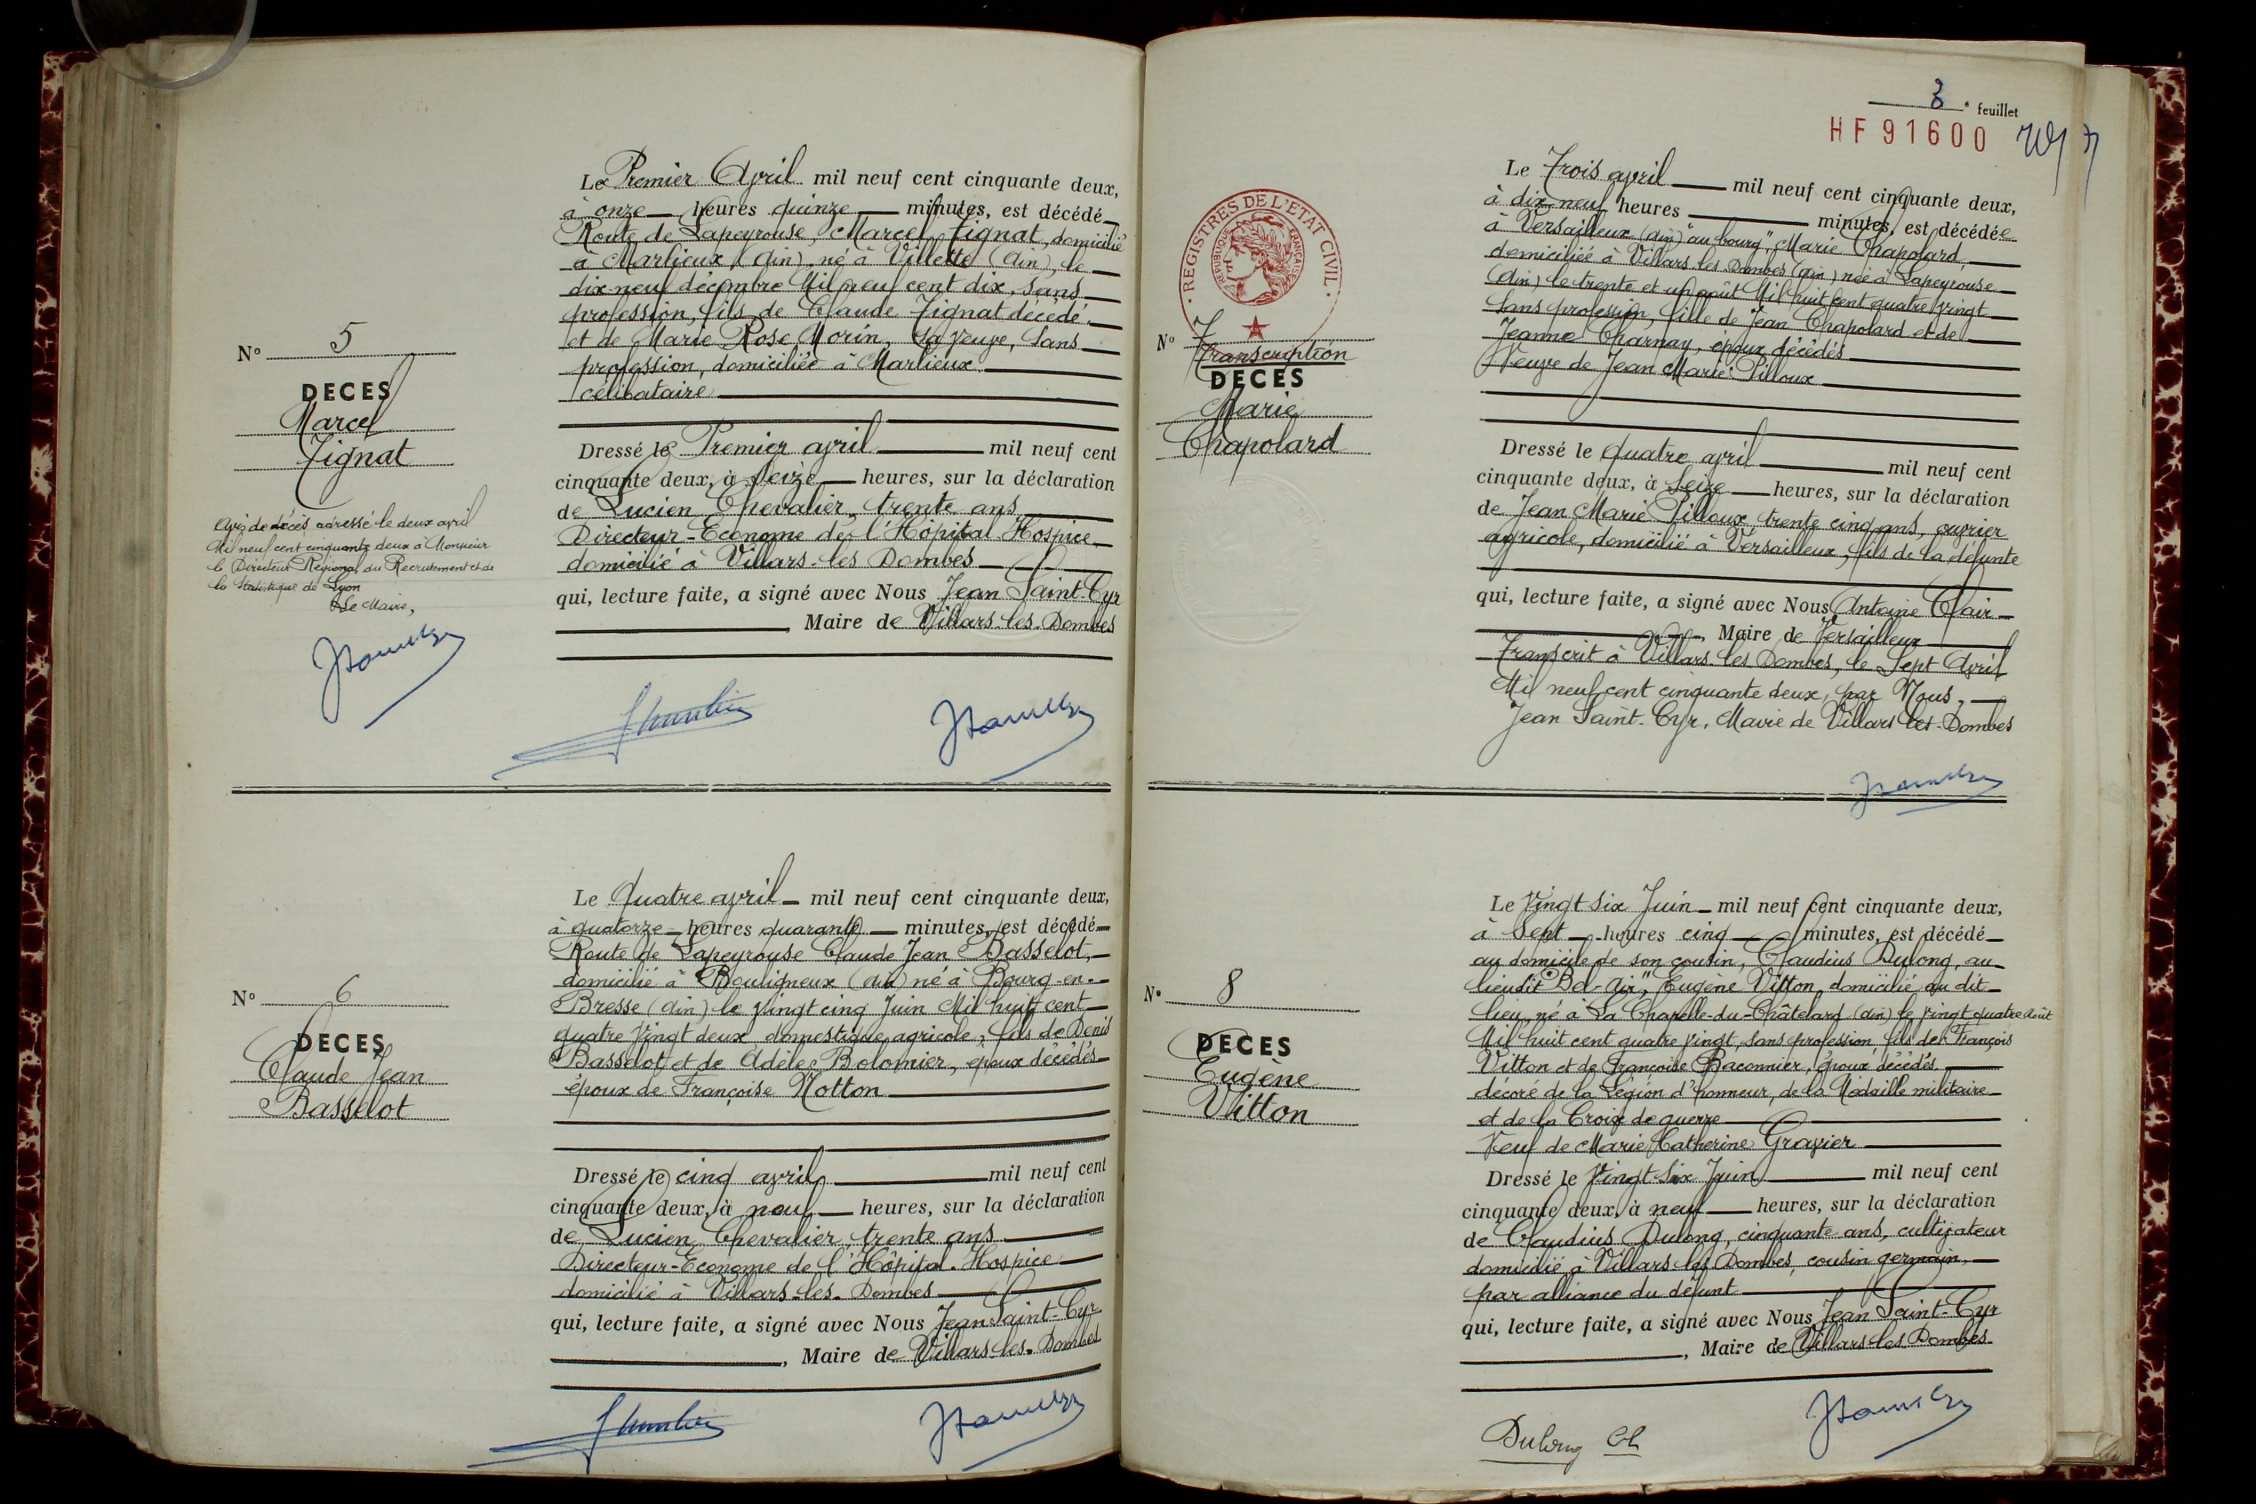 Le Premier Avril mil neuf cent cinquante deux,
à onze heures quinze minutes, est décédé
Route de Lapeyrouse, Marcel Tignat, domicilié
à Marlieux (Ain), né à Villette (Ain), le
dix-neuf décembre Mil neuf cent dix, sans
profession, fils de Claude Tignat décédé
et de Marie Rose Morin, sa veuve, sans
profession, domiciliée à Marlieux.
célibataire
N° 5
DECES
Marcel
Tignat
Avis de décès adressé le deux avril
Mil neuf cent cinquante deux à Monsieur
le Directeur Régional du Recrutement et de
la Statistique de Lyon
Le Maire,
Dressé le Premier avril mil neuf cent
cinquante deux, à Seize heures, sur la déclaration
de Lucien Chevalier, trente ans
Directeur-Econome de l'Hôpital Hospice
domicilié à Villars-les Dombes
qui, lecture faite, a signé avec Nous Jean Saint-Cyr
, Maire de Villars-les-Dombes
Le Quatre avril mil neuf cent cinquante deux,
à quatorze heures quarante minutes, est décédé
Route de Lapeyrouse Claude Jean Basselot,
domicilié à Bouligneux (Ain) né à Bourg-en-
Bresse (Ain) le vingt cinq Juin Mil huit cent
quatre vingt deux domestique agricole, fils de Denis
Basselot et de Adèle Bolomier, époux décédés
époux de Françoise Notton
N° 6
DECES
Claude Jean
Basselot
Dressé le cinq avril mil neuf cent
cinquante deux, à neuf heures, sur la déclaration
de Lucien Chevalier, trente ans
Directeur-Econome de l'Hôpital-Hospice
domicilié à Villars-les-Dombes
qui, lecture faite, a signé avec Nous Jean Saint-Cyr
, Maire de Villars-les-Dombes
3e feuillet
HF 91600
REGISTRES DE L'ETAT CIVIL
REPUBLIQUE FRANÇAISE
N° 7
Transcription
DECES
Marie
Chapolard
Le Trois avril mil neuf cent cinquante deux,
à dix-neuf heures minutes, est décédée
à Versailleux (Ain) "au bourg", Marie Chapolard
domiciliée à Villars les Dombes (Ain) née à Lapeyrouse
(Ain) le trente et un août Mil huit cent quatre vingt
sans profession, fille de Jean Chapolard et de
Jeanne Charnay, époux décédés
Veuve de Jean Marie Pilloux
Dressé le quatre avril mil neuf cent
cinquante deux, à Seize heures, sur la déclaration
de Jean Marie Pilloux, trente cinq ans, ouvrier
agricole, domicilié à Versailleux, fils de la défunte
qui, lecture faite, a signé avec Nous Antoine Clair
, Maire de Versailleux
Transcrit à Villars-les Dombes, le Sept Avril
Mil neuf cent cinquante deux, par Nous,
Jean Saint-Cyr, Maire de Villars les-Dombes
Le Vingt six Juin mil neuf cent cinquante deux,
à Sept heures cinq minutes, est décédé
au domicile de son cousin, Claudius Dulong, au
lieudit "Bel-Air", Eugène Vitton domicilié au dit
lieu, né à La Chapelle-du-Châtelard (Ain) le vingt quatre août
Mil huit cent quatre vingt, sans profession, fils de François
Vitton et de Françoise Baconnier, époux décédés,
décoré de la Légion d'honneur, de la Médaille militaire
et de la Croix de guerre
Veuf de Marie Catherine Gravier
N° 8
DECES
Eugène
Vitton
Dressé le vingt-six Juin mil neuf cent
cinquante deux, à neuf heures, sur la déclaration
de Claudius Dulong, cinquante ans, cultivateur
domicilié à Villars les Dombes, cousin germain,
par alliance du défunt
qui, lecture faite, a signé avec Nous Jean Saint-Cyr
, Maire de Villars-les-Dombes
Dulong Cl